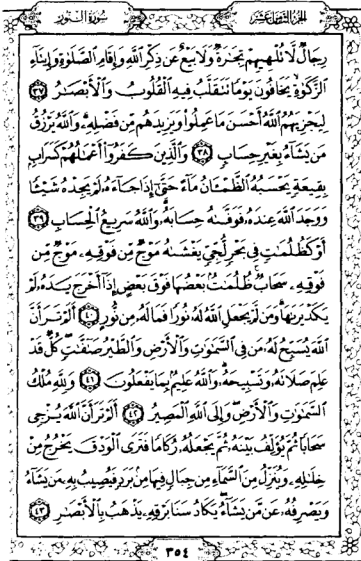 الجزء الثامن عشر سورة النور
رِجَالٌ لَّا تُلْهِيهِمْ تِجَٰرَةٌ وَلَا بَيْعٌ عَن ذِكْرِ ٱللَّهِ وَإِقَامِ ٱلصَّلَوٰةِ وَإِيتَآءِ
ٱلزَّكَوٰةِ يَخَافُونَ يَوْمًا تَتَقَلَّبُ فِيهِ ٱلْقُلُوبُ وَٱلْأَبْصَٰرُ ٣٧
لِيَجْزِيَهُمُ ٱللَّهُ أَحْسَنَ مَا عَمِلُوا۟ وَيَزِيدَهُم مِّن فَضْلِهِۦ وَٱللَّهُ يَرْزُقُ
مَن يَشَآءُ بِغَيْرِ حِسَابٍ ٣٨ وَٱلَّذِينَ كَفَرُوٓا۟ أَعْمَٰلُهُمْ كَسَرَابٍۭ
بِقِيعَةٍ يَحْسَبُهُ ٱلظَّمْـَٔانُ مَآءً حَتَّىٰٓ إِذَا جَآءَهُۥ لَمْ يَجِدْهُ شَيْـًٔا
وَوَجَدَ ٱللَّهَ عِندَهُۥ فَوَفَّىٰهُ حِسَابَهُۥ وَٱللَّهُ سَرِيعُ ٱلْحِسَابِ ٣٩
أَوْ كَظُلُمَٰتٍ فِى بَحْرٍ لُّجِّىٍّ يَغْشَىٰهُ مَوْجٌ مِّن فَوْقِهِۦ مَوْجٌ مِّن
فَوْقِهِۦ سَحَابٌ ظُلُمَٰتٌۢ بَعْضُهَا فَوْقَ بَعْضٍ إِذَآ أَخْرَجَ يَدَهُۥ لَمْ
يَكَدْ يَرَىٰهَا وَمَن لَّمْ يَجْعَلِ ٱللَّهُ لَهُۥ نُورًا فَمَا لَهُۥ مِن نُّورٍ ٤٠ أَلَمْ تَرَ أَنَّ
ٱللَّهَ يُسَبِّحُ لَهُۥ مَن فِى ٱلسَّمَٰوَٰتِ وَٱلْأَرْضِ وَٱلطَّيْرُ صَٰٓفَّٰتٍ كُلٌّ قَدْ
عَلِمَ صَلَاتَهُۥ وَتَسْبِيحَهُۥ وَٱللَّهُ عَلِيمٌۢ بِمَا يَفْعَلُونَ ٤١ وَلِلَّهِ مُلْكُ
ٱلسَّمَٰوَٰتِ وَٱلْأَرْضِ وَإِلَى ٱللَّهِ ٱلْمَصِيرُ ٤٢ أَلَمْ تَرَ أَنَّ ٱللَّهَ يُزْجِى
سَحَابًا ثُمَّ يُؤَلِّفُ بَيْنَهُۥ ثُمَّ يَجْعَلُهُۥ رُكَامًا فَتَرَى ٱلْوَدْقَ يَخْرُجُ مِنْ
خِلَٰلِهِۦ وَيُنَزِّلُ مِنَ ٱلسَّمَآءِ مِن جِبَالٍ فِيهَا مِنۢ بَرَدٍ فَيُصِيبُ بِهِۦ مَن يَشَآءُ
وَيَصْرِفُهُۥ عَن مَّن يَشَآءُ يَكَادُ سَنَا بَرْقِهِۦ يَذْهَبُ بِٱلْأَبْصَٰرِ ٤٣
٣٥٤